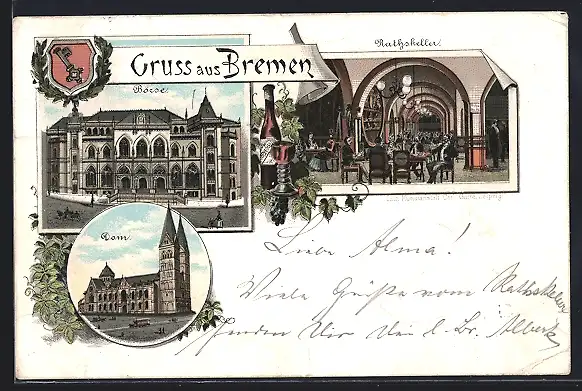 Gruss aus Bremen
Rathskeller.
Börse.
Dom.
Liebe Alma!
Viele Grüße vom Rathskeller
senden Dir Dein l. Br. Albert